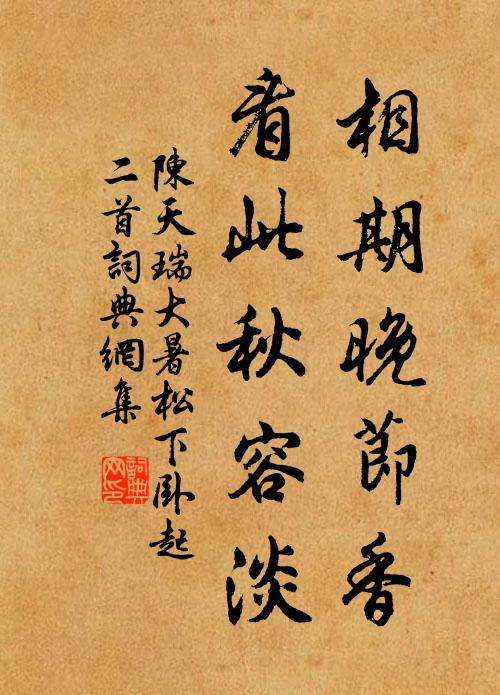 相期晚節香
看此秋容淡
陳天瑞大暑松下卧起
二首詞典網集
詞典
网印